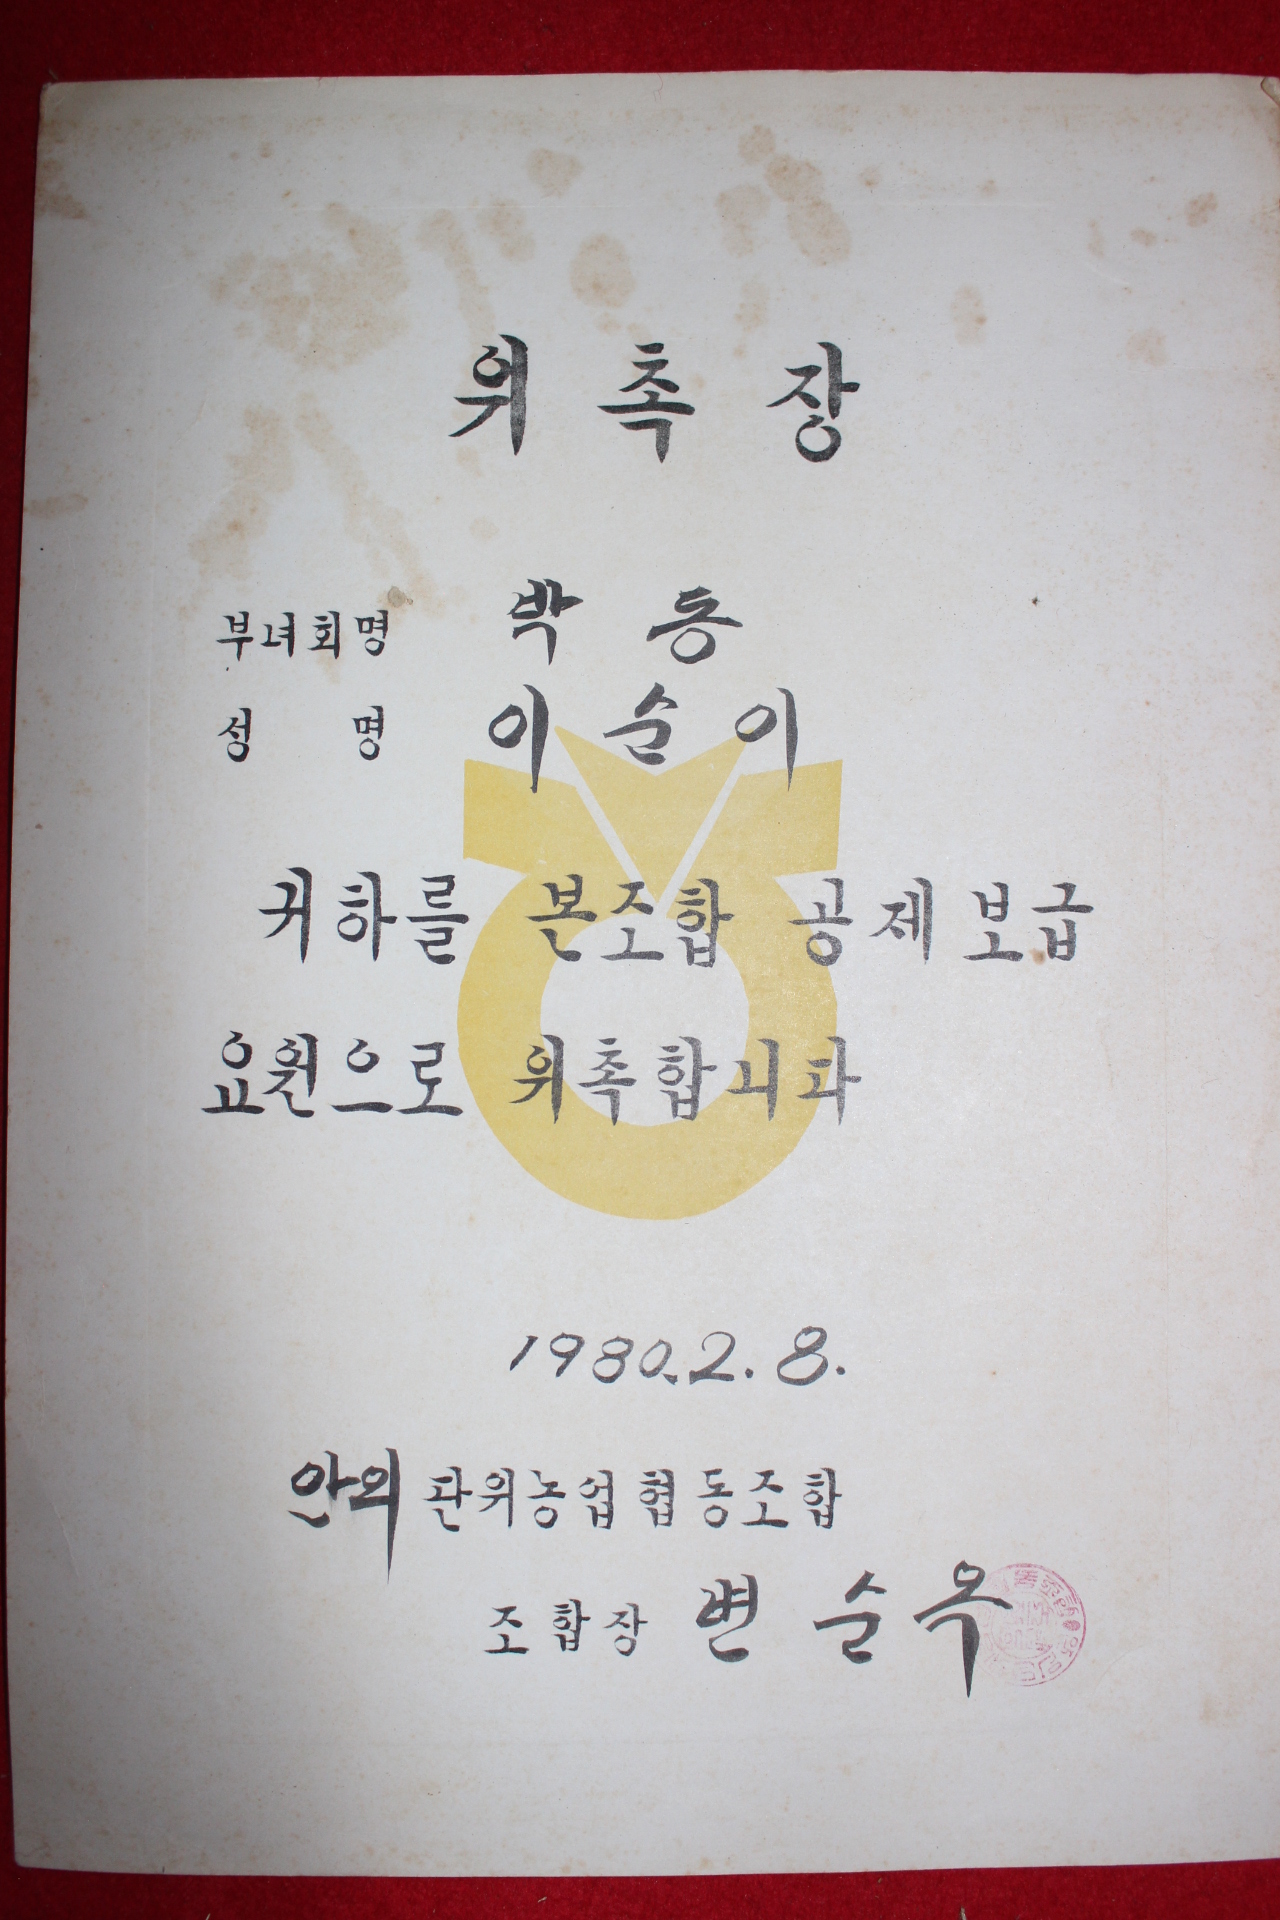 위 촉 장
부녀회명 박 동
성 명 이 순 이
귀하를 본조합 공제 보급
요원으로 위촉합니다
1980.2.8.
안의 단위농업협동조합
조합장 변 순 옥